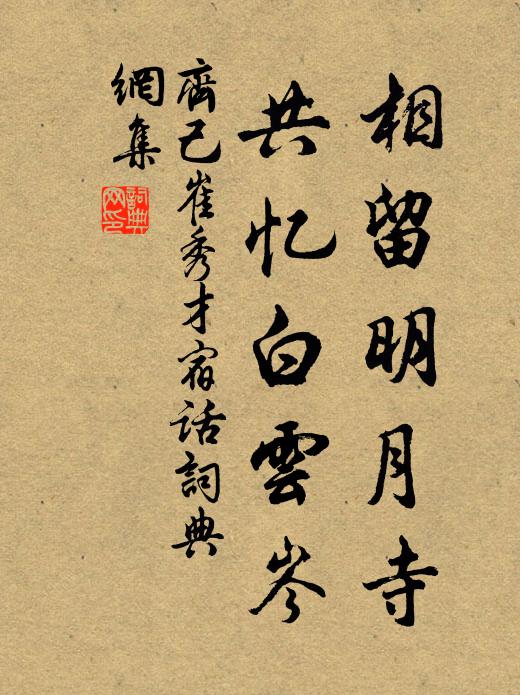 相留明月寺
共忆白雲岑
齊己崔秀才宿話詞典
網集
詞典
网印